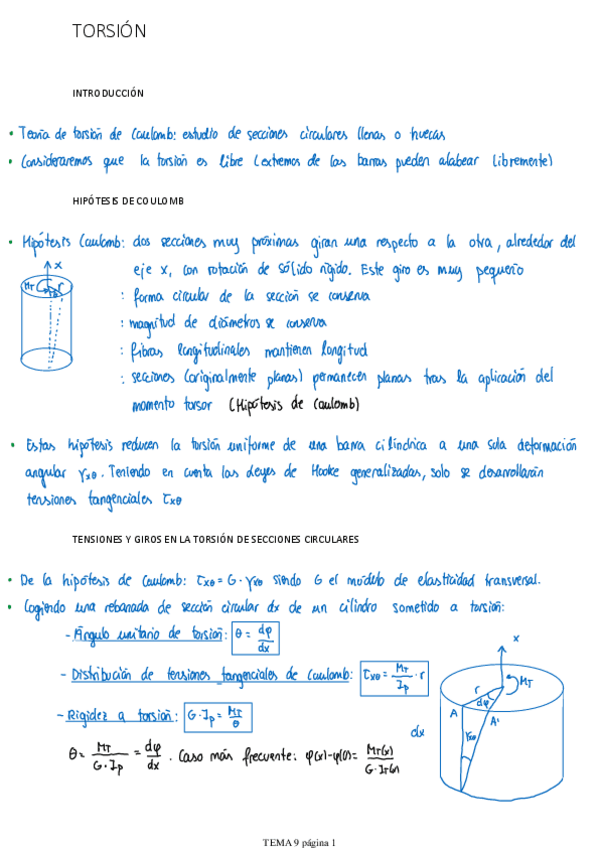 TORSIÓN
INTRODUCCIÓN
• Teoría de torsión de Coulomb: estudio de secciones circulares llenas o huecas
• Consideraremos que la torsión es libre (extremos de las barras pueden alabear libremente)
HIPÓTESIS DE COULOMB
• Hipótesis Coulomb: dos secciones muy próximas giran una respecto a la otra, alrededor del
eje x, con rotación de sólido rígido. Este giro es muy pequeño
: forma circular de la sección se conserva
: magnitud de diámetros se conserva
: fibras longitudinales mantienen longitud
: secciones (originalmente planas) permanecen planas tras la aplicación del
momento torsor (Hipótesis de Coulomb)
x
MT r
• Estas hipótesis reducen la torsión uniforme de una barra cilíndrica a una sola deformación
angular γxθ. Teniendo en cuenta las leyes de Hooke generalizadas, solo se desarrollarán
tensiones tangenciales τxθ
TENSIONES Y GIROS EN LA TORSIÓN DE SECCIONES CIRCULARES
• De la hipótesis de Coulomb: τxθ = G · γxθ siendo G el módulo de elasticidad transversal.
• Cogiendo una rebanada de sección circular dx de un cilindro sometido a torsión:
- Ángulo unitario de torsión: θ = dφ/dx
- Distribución de tensiones tangenciales de Coulomb: τxθ = MT/Ip · r
- Rigidez a torsión: G · Ip = MT/θ
θ = MT/(G · Ip) = dφ/dx . Caso más frecuente: φ(x)-φ(0) = MT(x)/(G · IT(x)
x
r
MT
dφ
A
A'
γxθ
dx
TEMA 9 página 1